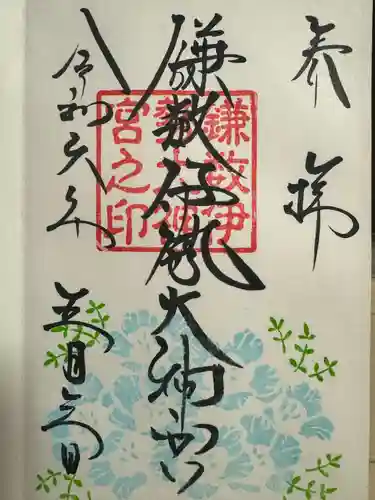 奉拝
鎌数伊勢大神宮
令和六年
五月三日
鎌数伊
勢大神
宮之印